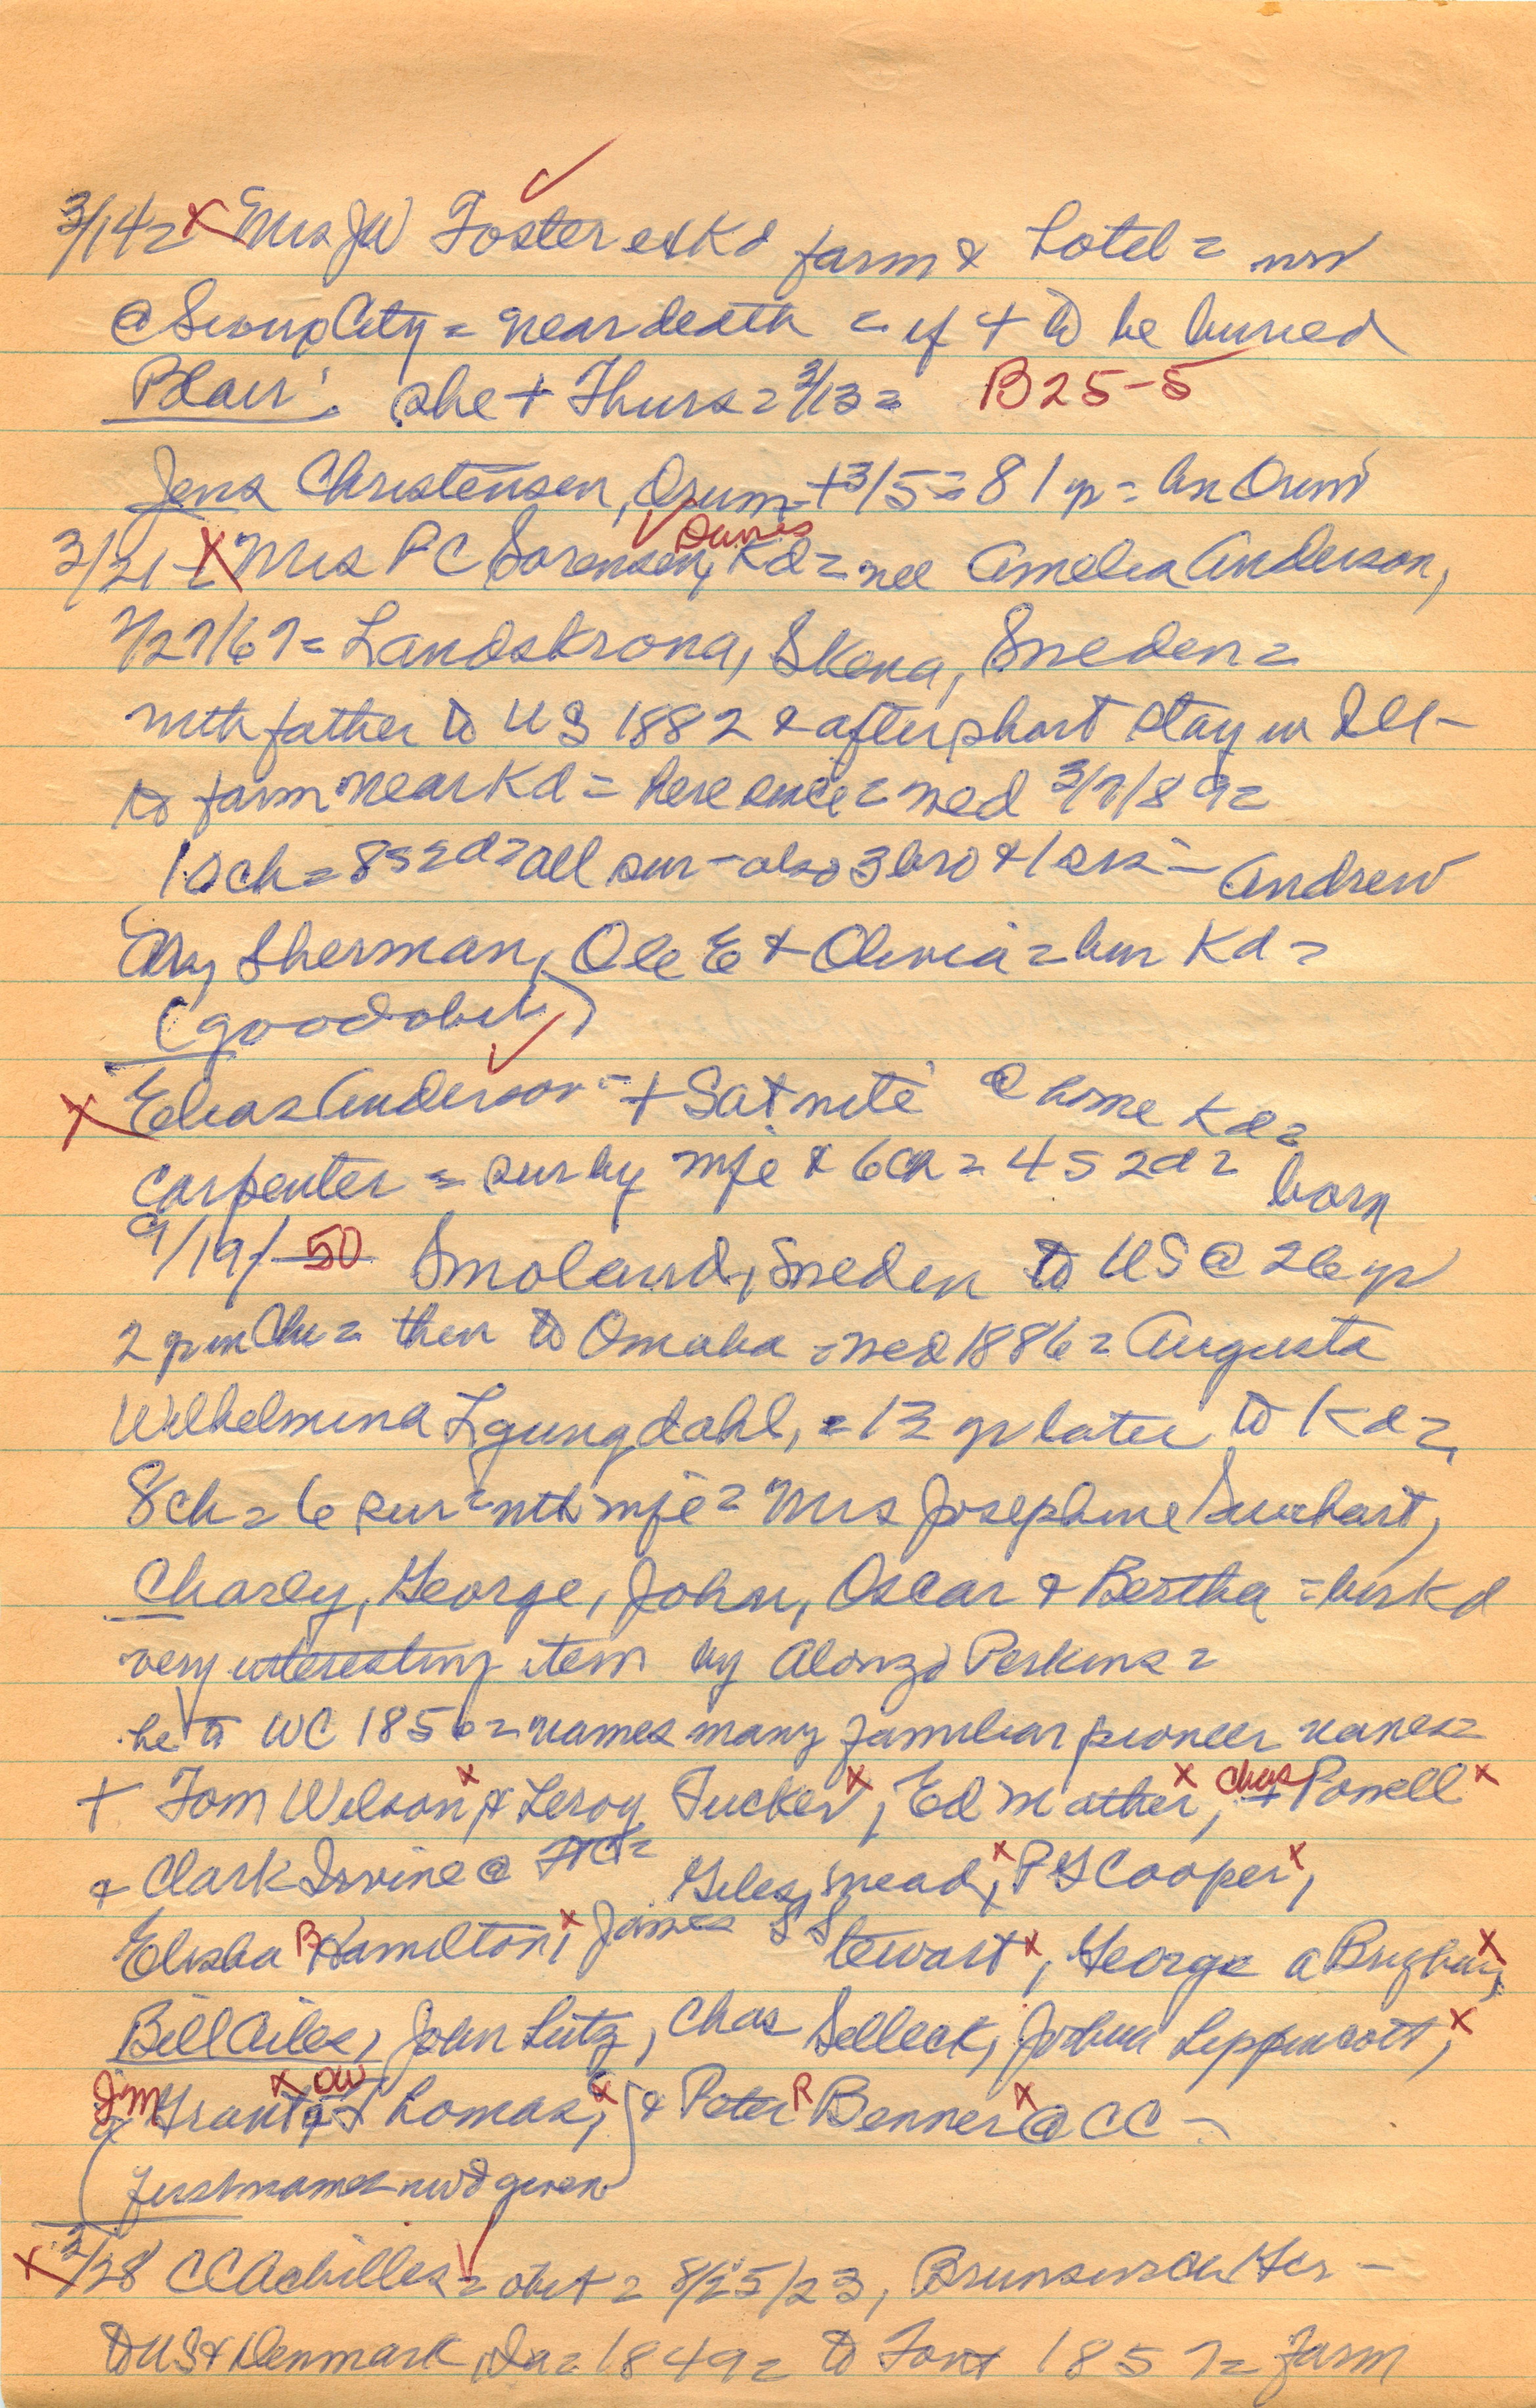 3/14= x Mrs JW Foster exKd farm & hotel = now
@ Sioux City = near death = if + to be buried
Blair: she + Thurs = 3/13 = B25-5
Jens Christensen, Orum + 3/5 = 81 yr = bn Orum
3/21 - x Mrs PC Sorensen, Kd = nee Amelia Anderson,
7/27/67 = Landskrona, Skena, Sweden =
with father to US 1882 & after short stay in Ill -
to farm near Kd = here since = wed 3/7/89 =
10ch = 8s 2d = all sur - also 3 bro & 1 sis - Andrew
Sherman, Ole E & Olivia = bur Kd =
(good obit)
x Elias Anderson - + Sat nite @ home Kd =
carpenter = sur by wife & 6ch = 4s 2d = born
9/19/-50 Smoland, Sweden to US @ 26 yr
2 yr in Chi = then to Omaha = wed 1886 = Augusta
Wilhelmina Lgungdahl, = 13 yr later to Kd =
8ch = 6 sur = with wife = Mrs Josephine
Charley, George, John, Oscar & Bertha = bur Kd
very interesting item by Alonzo Perkins =
he to WC 1856 = names many familiar pioneer names =
+ Tom Wilson x & Leroy Tucker x, Ed Mather x, Chas + Powell x
& Clark Irvine @ Giles, Mead x, PG Cooper x,
Elisha P Hamilton, x James S Stewart x, George A Brigham x,
Bill Ailes, John Lutz, Chas Selleck, Joshua Lippincott, x
Jim Grant x & OW Thomas, x & Peter R Benner x @ CC -
(first names not given)
x 3/28 CC Achilles = obit = 8/25/23, Brunswick Ger -
to US & Denmark, Ia = 1849 = to Font 1857 = farm